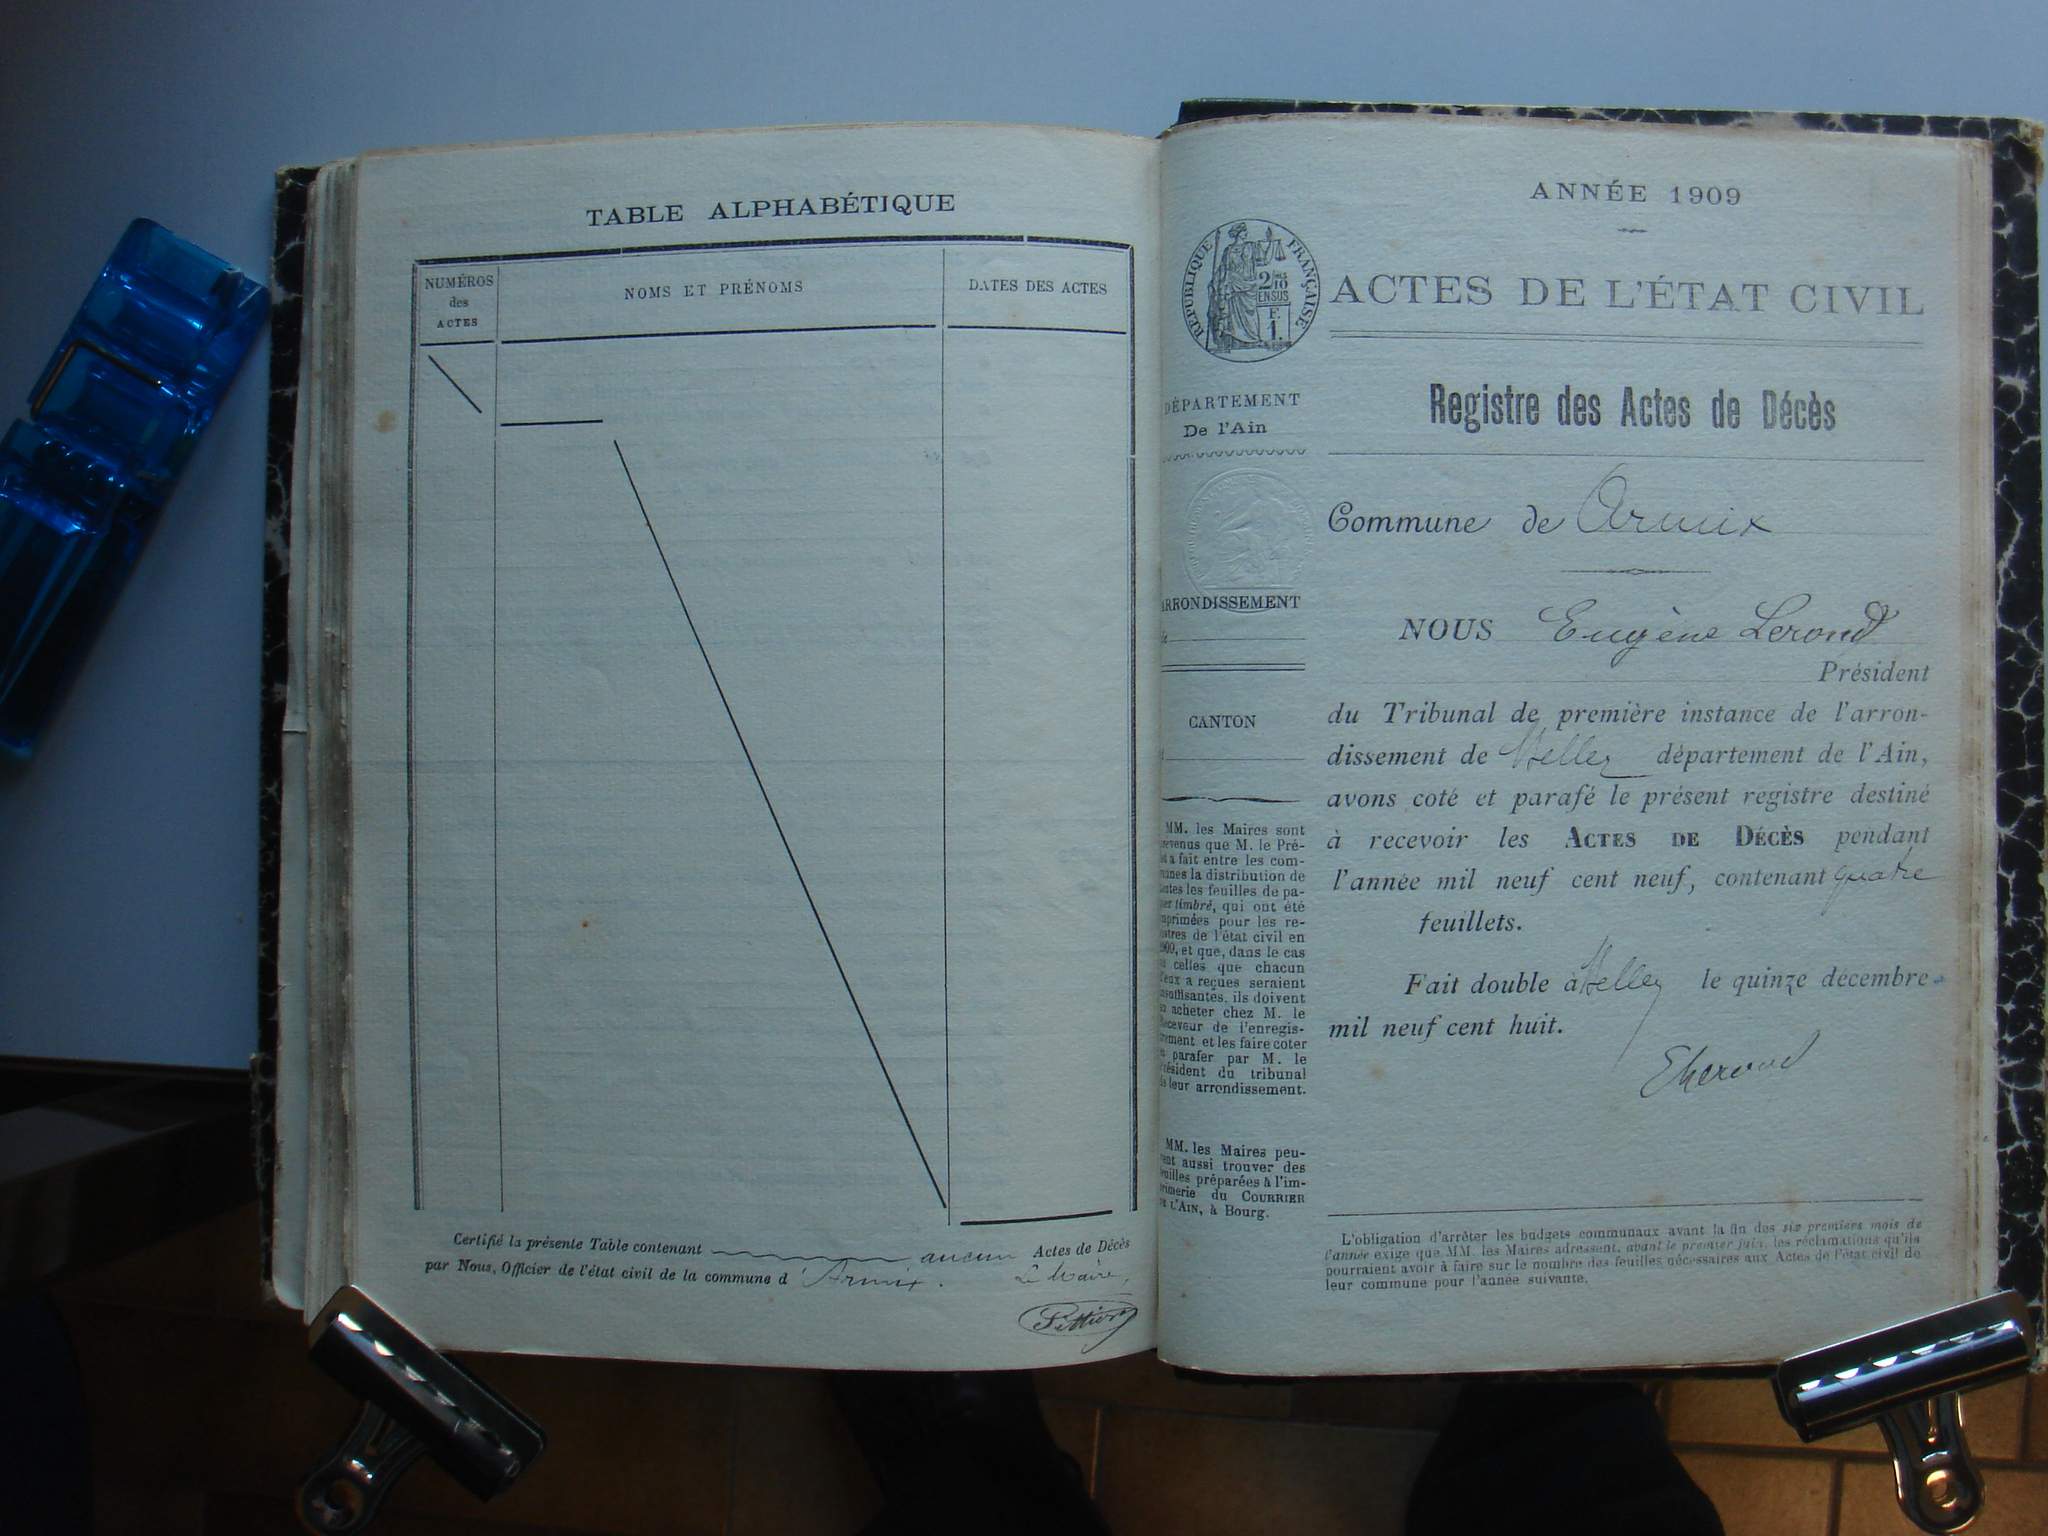 TABLE ALPHABÉTIQUE
NUMÉROS
des
ACTES
NOMS ET PRÉNOMS
DATES DES ACTES
Certifié la présente Table contenant aucun Actes de Décès
par Nous, Officier de l'état civil de la commune d'Armix.
Le Maire,
ANNÉE 1909
RÉPUBLIQUE FRANÇAISE
ACTES DE L'ÉTAT CIVIL
DÉPARTEMENT
De l'Ain
Registre des Actes de Décès
Commune de Armix
ARRONDISSEMENT
NOUS Eugène Lerond
Président
CANTON
du Tribunal de première instance de l'arron-
dissement de Belley département de l'Ain,
avons coté et parafé le présent registre destiné
à recevoir les ACTES DE DÉCÈS pendant
l'année mil neuf cent neuf, contenant quatre
feuillets.
Fait double à Belley le quinze décembre
mil neuf cent huit.
MM. les Maires sont
que M. le Pré-
a fait entre les com-
la distribution de
les feuilles de pa-
timbré, qui ont été
pour les re-
de l'état civil en
et que, dans le cas
celles que chacun
a reçues seraient
ils doivent
acheter chez M. le
Receveur de l'enregis-
et les faire coter
parafer par M. le
du tribunal
leur arrondissement.
MM. les Maires peu-
aussi trouver des
préparées à l'im-
du COURRIER
L'AIN, à Bourg.
L'obligation d'arrêter les budgets communaux avant la fin des six premiers mois de
l'année exige que MM. les Maires adressent, avant le premier juin, les réclamations qu'ils
pourraient avoir à faire sur le nombre des feuilles nécessaires aux Actes de l'état civil de
leur commune pour l'année suivante.